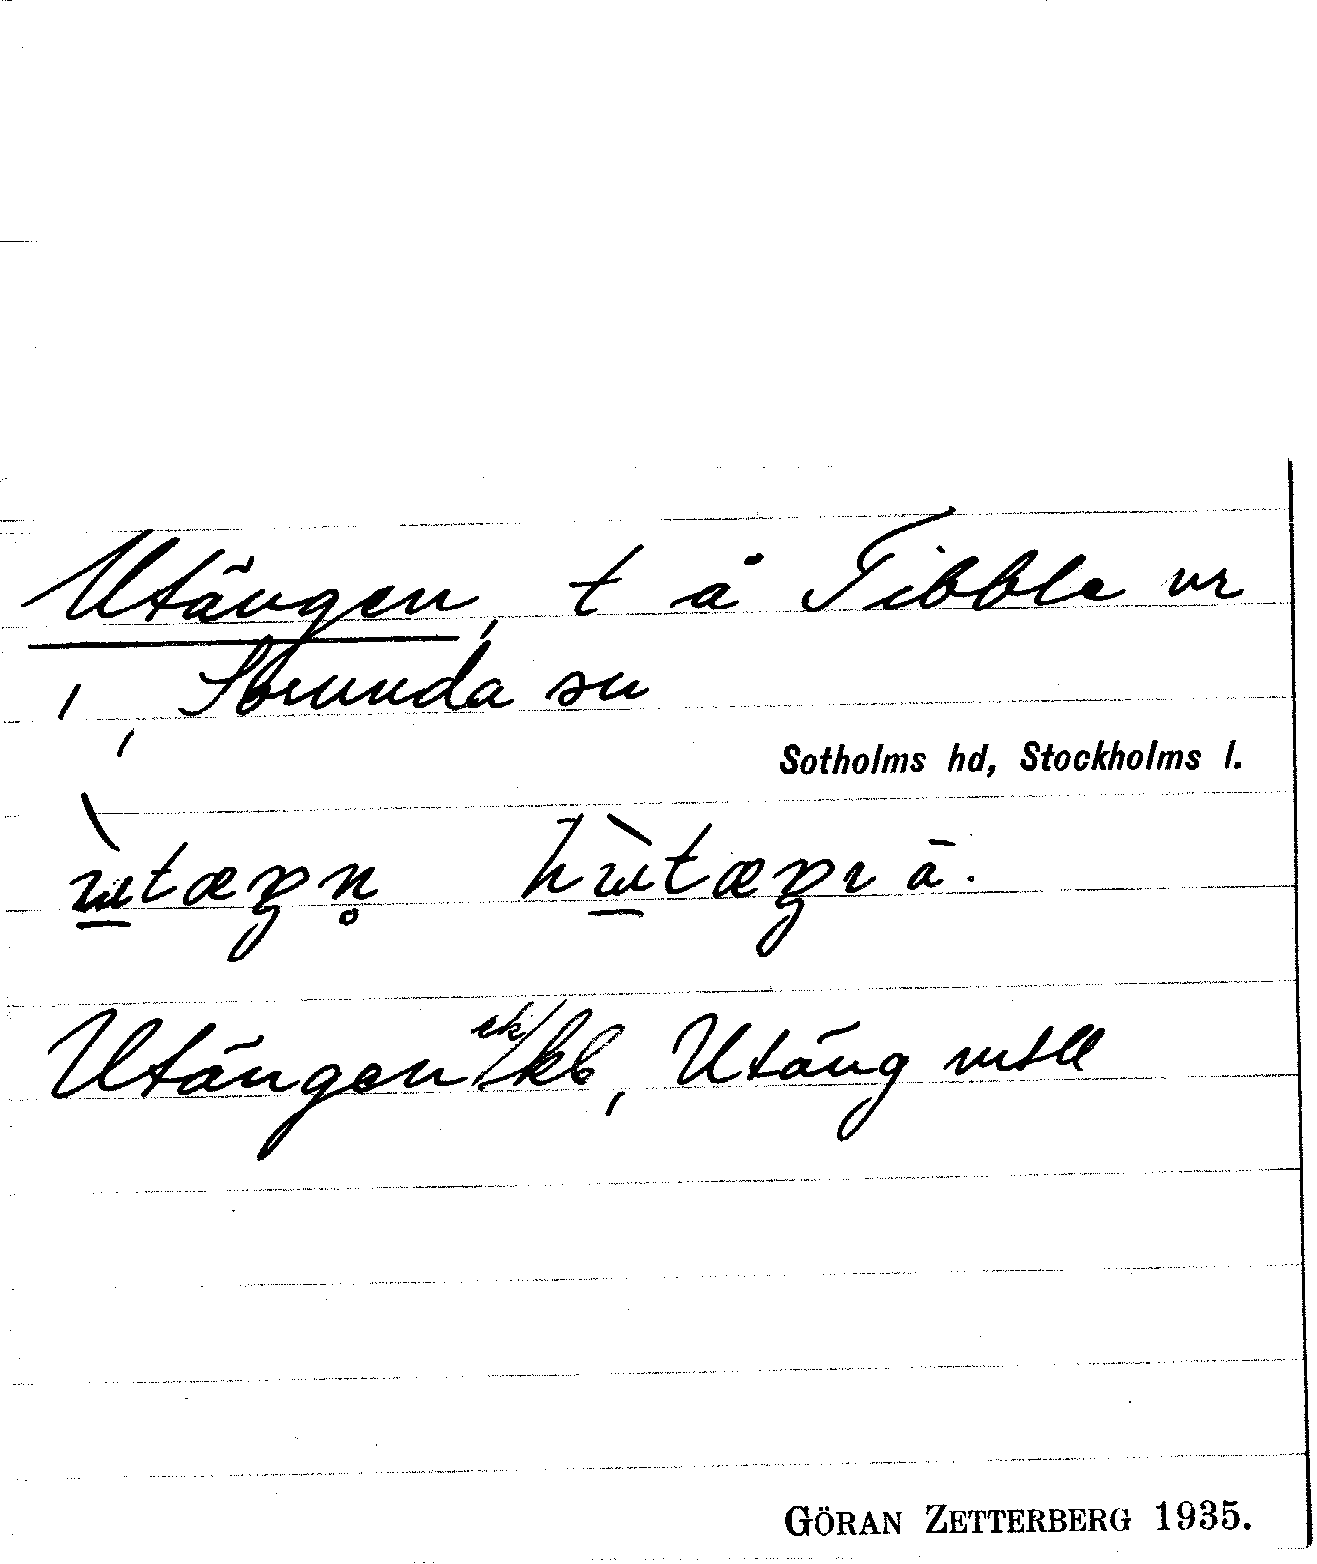 Utängen, t å Tibble nr
1, Sorunda sn
Sotholms hd, Stockholms l.
ẁtæŋn̥ hẁtæŋı ā.
Utängen ek/kb, Utäng mtll
GÖRAN ZETTERBERG 1935.